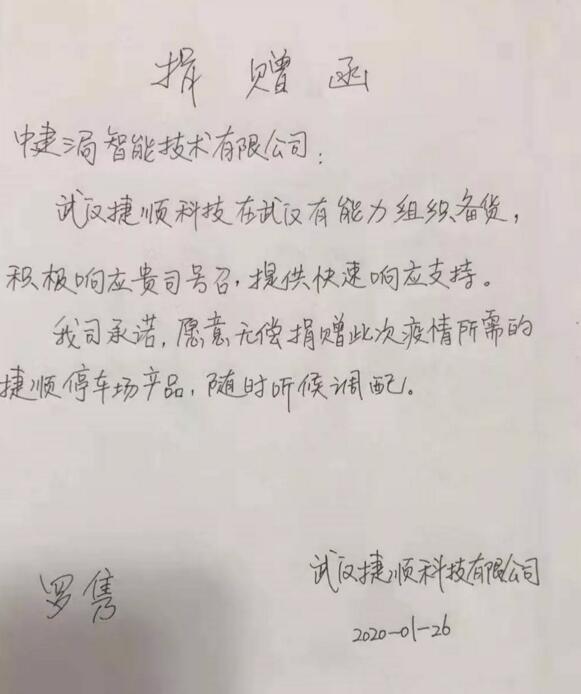 捐赠函
中建三局智能技术有限公司：
武汉捷顺科技在武汉有能力组织备货，
积极响应贵司号召，提供快速响应支持。
我司承诺，愿意无偿捐赠此次疫情所需的
捷顺停车场产品，随时听候调配。
武汉捷顺科技有限公司
罗隽
2020-01-26